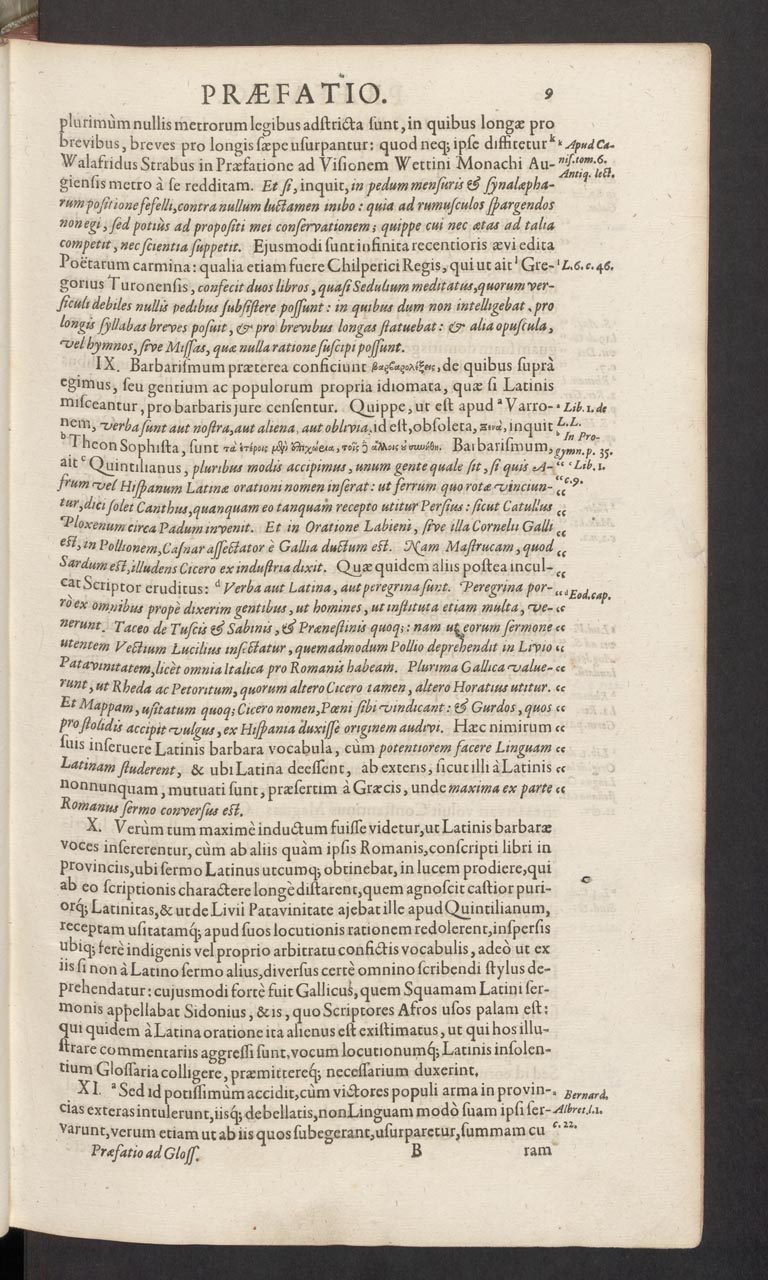 PRÆFATIO. 9
plurimùm nullis metrorum legibus adstricta sunt, in quibus longæ pro
brevibus, breves pro longis sæpe usurpantur: quod neq; ipse diffitetur k
Walafridus Strabus in Præfatione ad Visionem Wettini Monachi Au-
giensis metro à se redditam. Et si, inquit, in pedum mensuris & synalæpha-
rum positione fefelli, contra nullum luctamen inibo: quia ad rumusculos spargendos
non egi, sed potiùs ad propositi mei conservationem; quippe cui nec ætas ad talia
competit, nec scientia suppetit. Ejusmodi sunt infinita recentioris ævi edita
Poëtarum carmina: qualia etiam fuere Chilperici Regis, qui ut ait l Gre-
gorius Turonensis, confecit duos libros, quasi Sedulium meditatus, quorum ver-
siculi debiles nullis pedibus subsistere possunt: in quibus dum non intelligebat, pro
longis syllabas breves posuit, & pro brevibus longas statuebat: & alia opuscula,
vel hymnos, sive Missas, quæ nulla ratione suscipi possunt.
IX. Barbarismum præterea conficiunt βαρβαρολέξεις, de quibus suprà
egimus, seu gentium ac populorum propria idiomata, quæ si Latinis
misceantur, pro barbaris jure censentur. Quippe, ut est apud a Varro-
nem, verba sunt aut nostra, aut aliena, aut oblivia, id est, obsoleta, ξενὰ, inquit
b Theon Sophista, sunt τὰ ἑτέροις μὲν ἐπιχώρια, τοῖς δὲ ἄλλοις οὐ συνήθη. Barbarismum,
ait c Quintilianus, pluribus modis accipimus, unum gente quale sit, si quis A-
frum vel Hispanum Latinæ orationi nomen inserat: ut ferrum quo rotæ vinciun-
tur, dici solet Canthus, quanquam eo tanquam recepto utitur Persius: sicut Catullus
Ploxenum circa Padum invenit. Et in Oratione Labieni, sive illa Cornelii Galli
est, in Pollionem, Casnar assectator è Gallia ductum est. Nam Mastrucam, quod
Sardum est, illudens Cicero ex industria dixit. Quæ quidem aliis postea incul-
cat Scriptor eruditus: d Verba aut Latina, aut peregrina sunt. Peregrina por-
rò ex omnibus propè dixerim gentibus, ut homines, ut instituta etiam multa, ve-
nerunt. Taceo de Tuscis & Sabinis, & Prænestinis quoq;: nam ut eorum sermone
utentem Vectium Lucilius insectatur, quemadmodum Pollio deprehendit in Livio
Patavinitatem, licèt omnia Italica pro Romanis habeam. Plurima Gallica value-
runt, ut Rheda ac Petoritum, quorum altero Cicero tamen, altero Horatius utitur.
Et Mappam, usitatum quoq; Circo nomen, Pœni sibi vindicant: & Gurdos, quos
pro stolidis accipit vulgus, ex Hispania duxisse originem audivi. Hæc nimirum
suis inseruere Latinis barbara vocabula, cùm potentiorem facere Linguam
Latinam studerent, & ubi Latina deessent, ab exteris, sicut illi à Latinis
nonnunquam, mutuati sunt, præsertim à Græcis, unde maxima ex parte
Romanus sermo conversus est.
X. Verùm tum maximè inductum fuisse videtur, ut Latinis barbaræ
voces insererentur, cùm ab aliis quàm ipsis Romanis, conscripti libri in
provinciis, ubi sermo Latinus utcumq; obtinebat, in lucem prodiere, qui
ab eo scriptionis charactere longè distarent, quem agnoscit castior puri-
orq́; Latinitas, & ut de Livii Patavinitate ajebat ille apud Quintilianum,
receptam usitatamq́; apud suos locutionis rationem redolerent, inspersis
ubiq; ferè indigenis vel proprio arbitratu confictis vocabulis, adeò ut ex
iis si non à Latino sermo alius, diversus certè omnino scribendi stylus de-
prehendatur: cujusmodi fortè fuit Gallicus, quem Squamam Latini ser-
monis appellabat Sidonius, & is, quo Scriptores Afros usos palam est:
qui quidem à Latina oratione ita alienus est existimatus, ut qui hos illu-
strare commentariis aggressi sunt, vocum locutionumq́; Latinis insolen-
tium Glossaria colligere, præmittereq́; necessarium duxerint.
XI. a Sed id potissimùm accidit, cùm victores populi arma in provin-
cias exteras intulerunt, iisq́; debellatis, non Linguam modò suam ipsi ser-
varunt, verum etiam ut ab iis quos subegerant, usurparetur, summam cu
Præfatio ad Gloss. B ram
k Apud Ca-
nis. tom. 6.
Antiq. lect.
l L. 6. c. 46.
a Lib. 1. de
L. L.
b In Pro-
gymn. p. 35.
c Lib. 1.
c. 9.
d Eod. cap.
a Bernard.
Albret. l. 1.
c. 22.